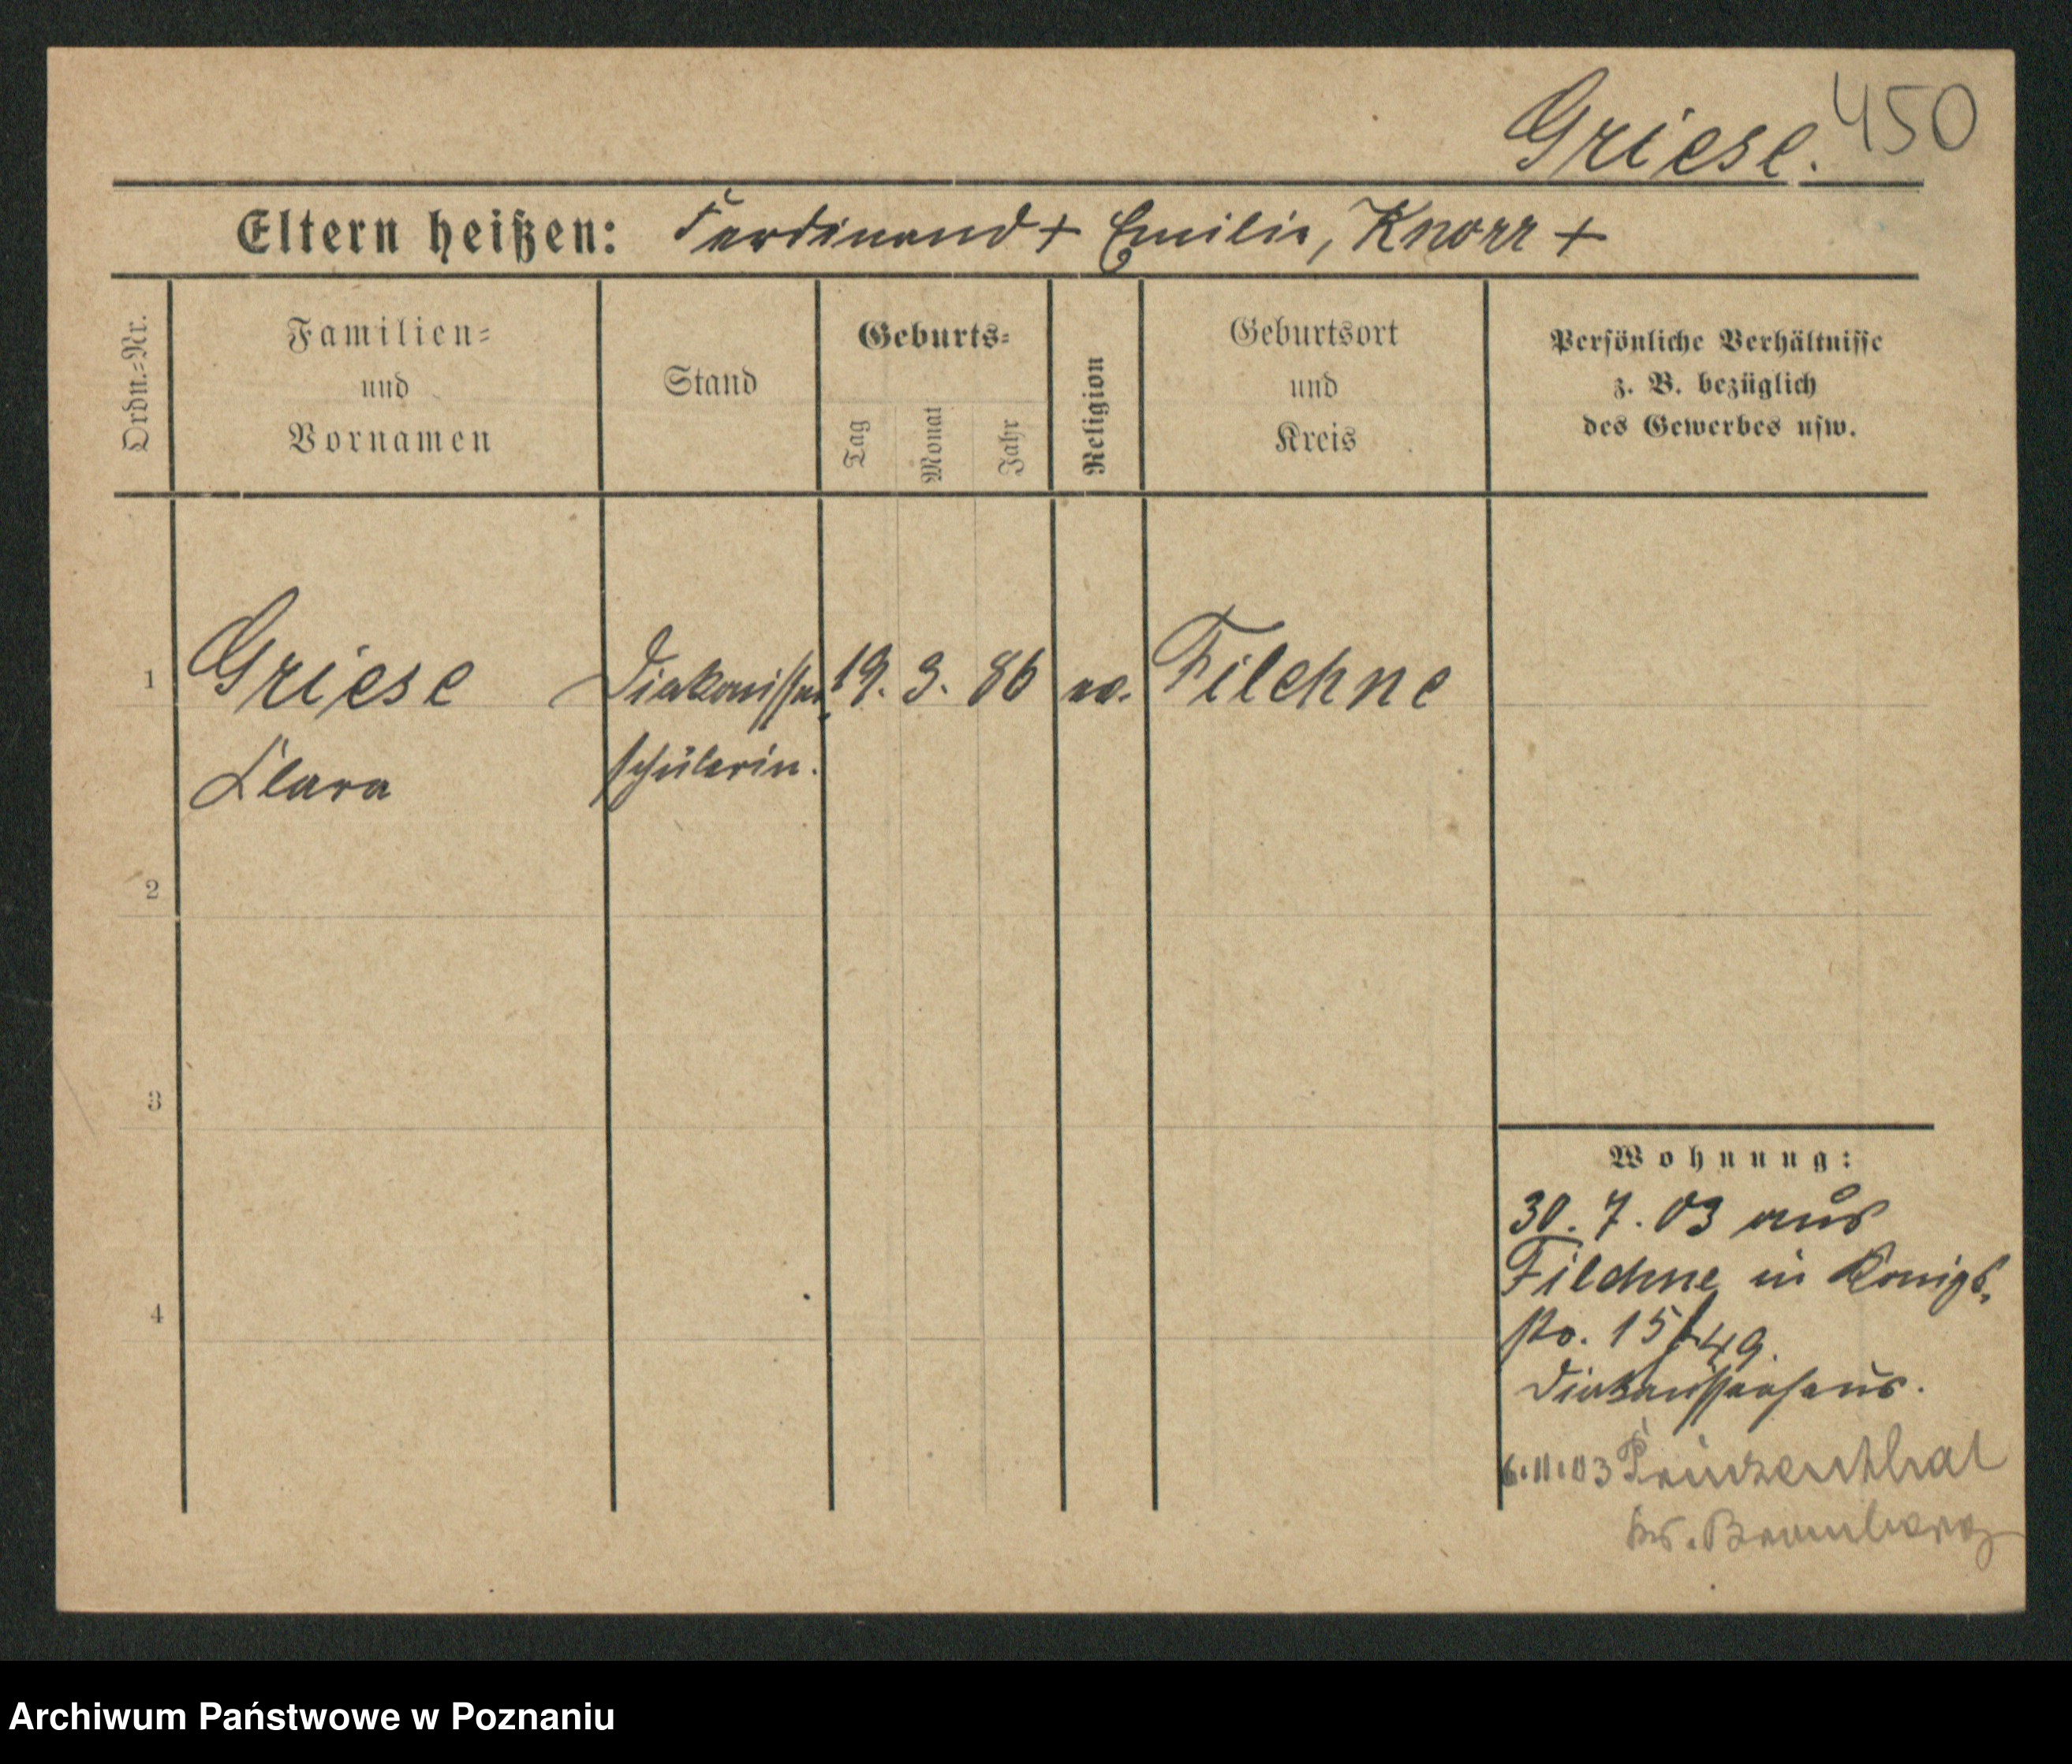 Griese. 450
Eltern heißen: Ferdinand + Emilie, Knorr +
Ordn.-Nr.
Familien-
und
Vornamen
Stand
Geburts-
Tag
Monat
Jahr
Religion
Geburtsort
und
Kreis
Persönliche Verhältnisse
z. B. bezüglich
des Gewerbes usw.
1 Griese Diakonissen 19. 3. 86 ev. Filehne
Clara schülerin.
2
3
4
Wohnung:
30. 7. 03 aus
Filehne in Königs-
str. 15/49.
Diakonissenhaus.
6.11.03 Prinzenthal
Kr. Bromberg
Archiwum Państwowe w Poznaniu